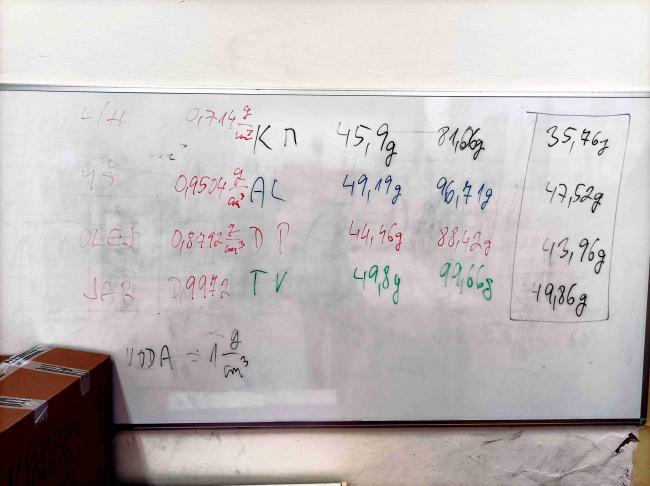 LIH 0,714 g/cm³ KM 45,9g 81,66g 35,76g
0,9504 g/cm³ AL 49,19g 96,71g 47,52g
OLEJ 0,8792 g/cm³ DP 44,46g 88,42g 43,96g
JAR 0,9972 TV 49,8g 99,66g 49,86g
VODA = 1 g/cm³